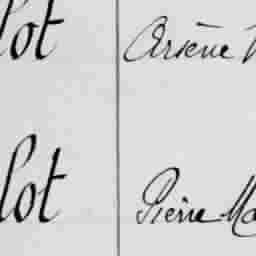 lot Arsène
lot Pierre